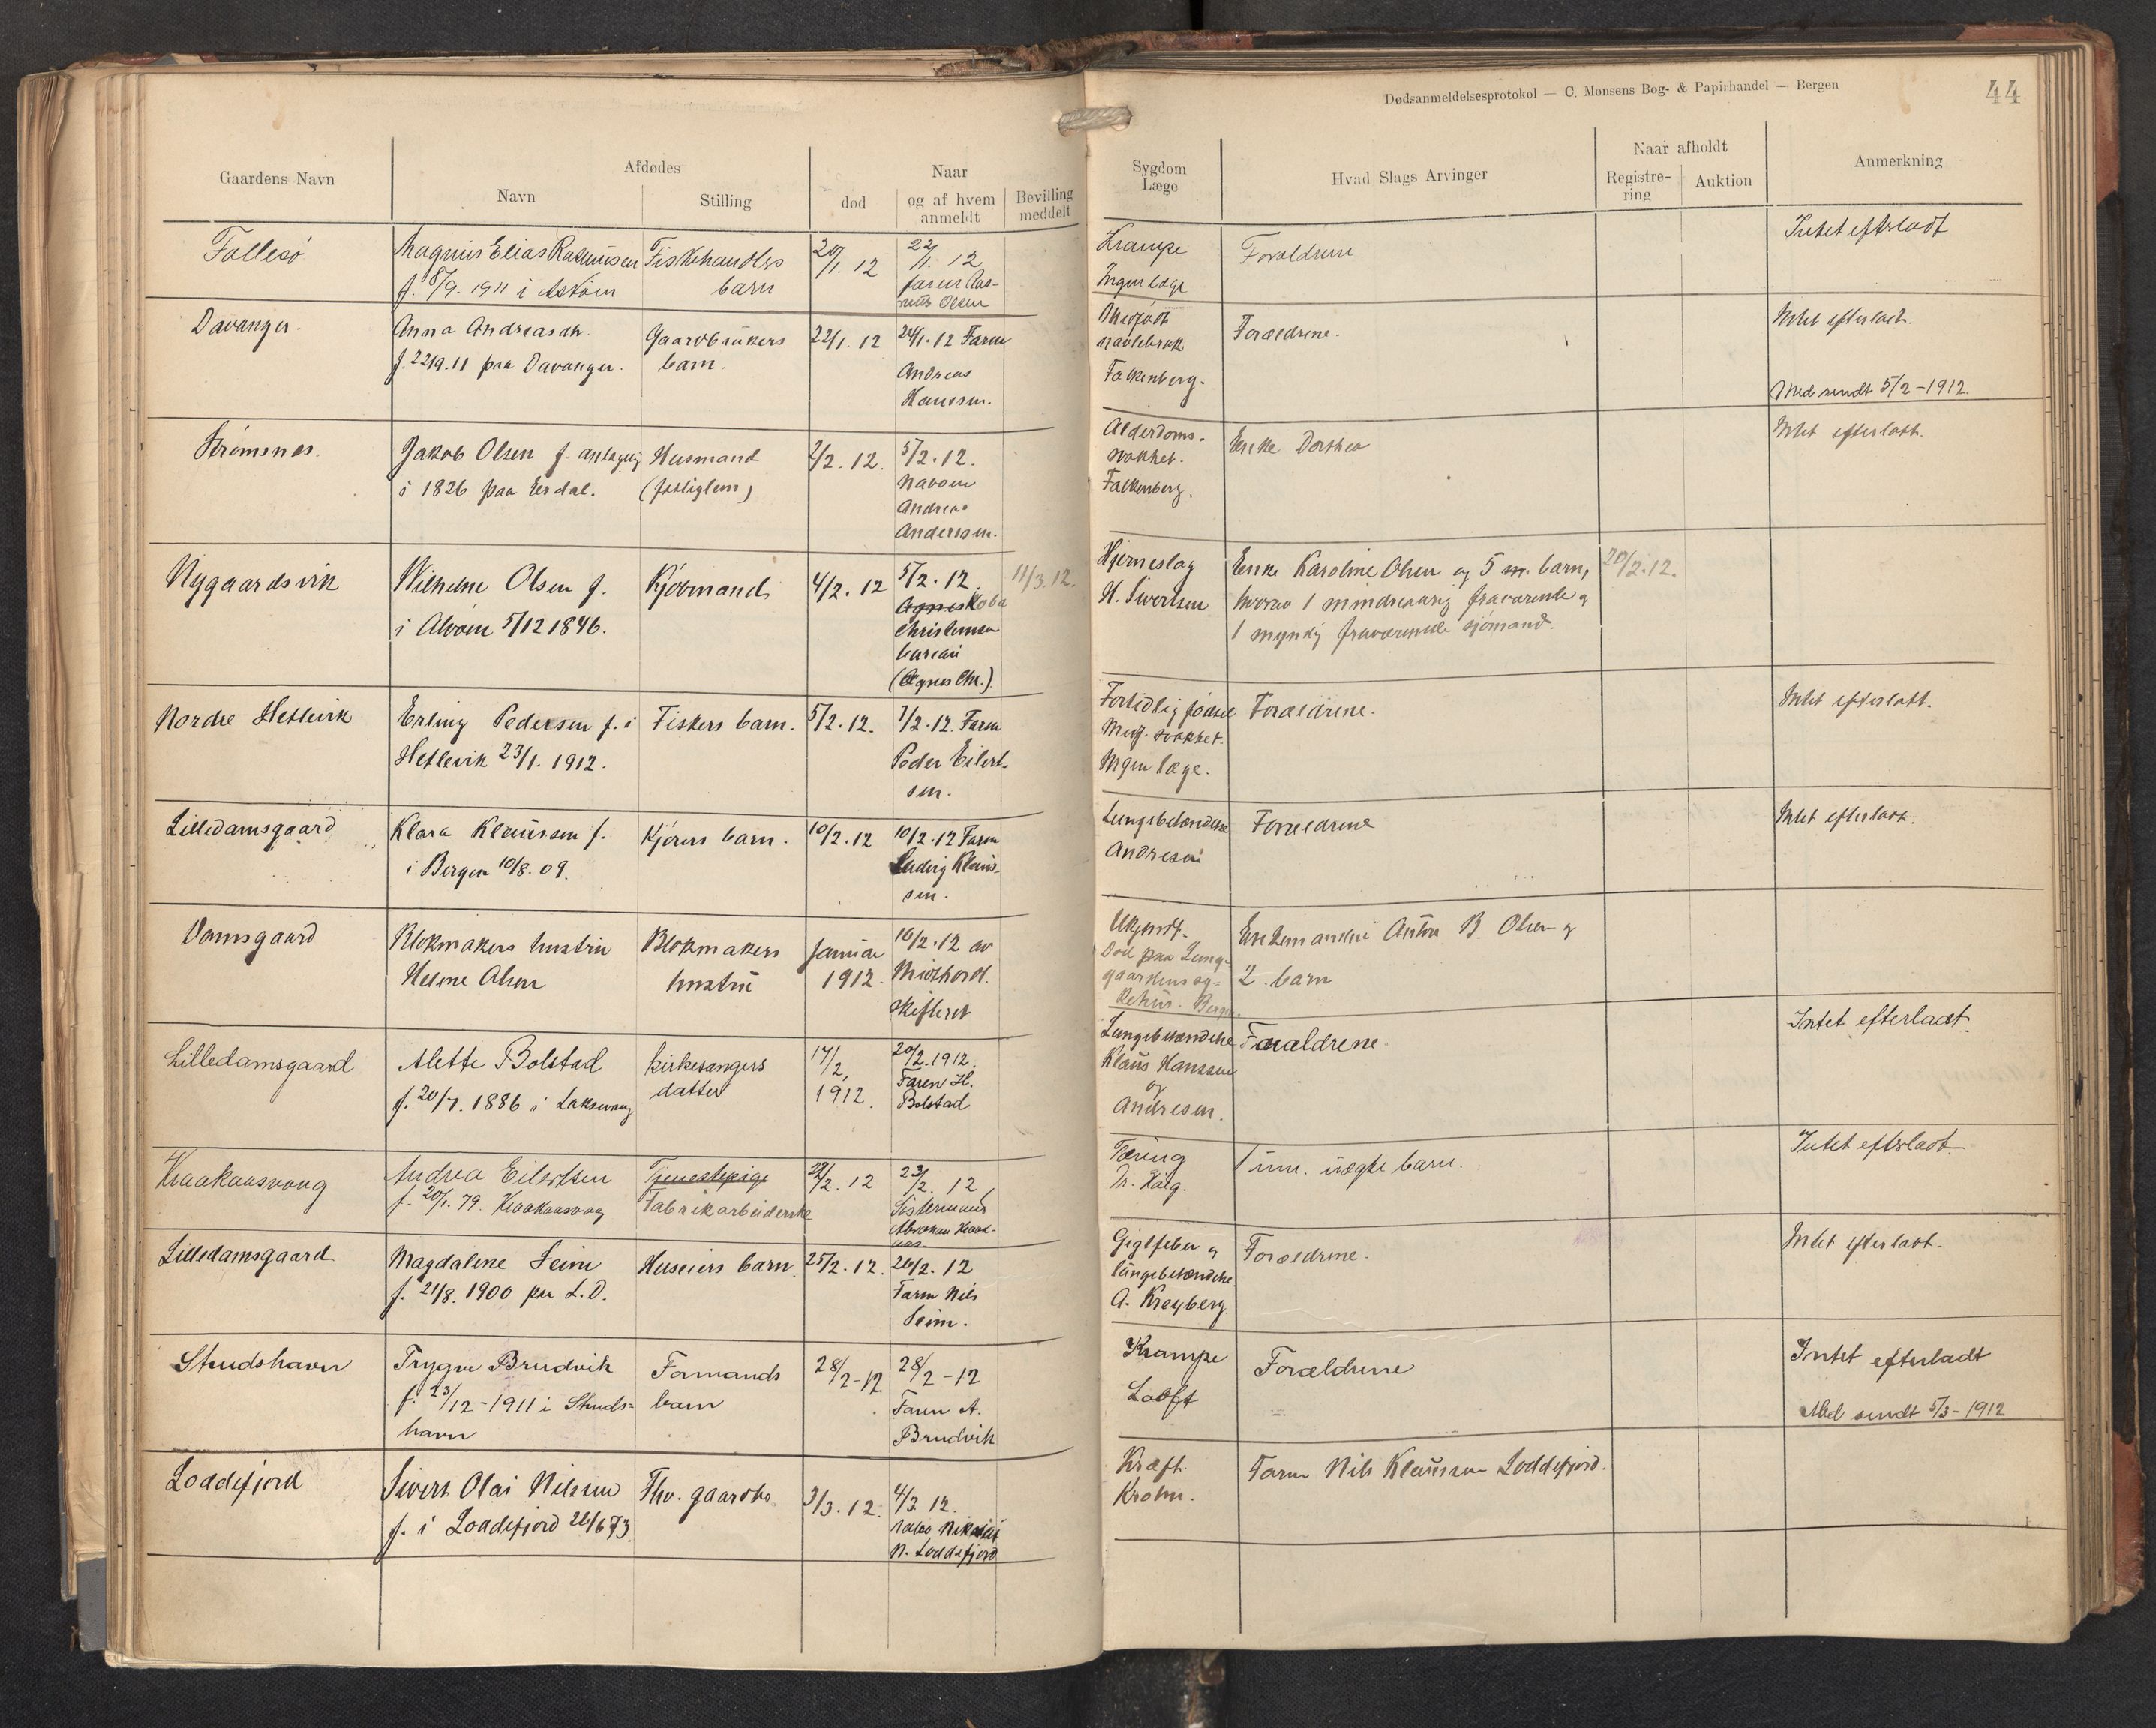 Dødsanmeldelsesprotokol — C. Monsens Bog- & Papirhandel — Bergen
44
Gaardens Navn
Afdødes
Navn
Stilling
død
Naar
og af hvem
anmeldt
Bevilling
meddelt
Sygdom
Læge
Hvad Slags Arvinger
Naar afholdt
Registre-
ring
Auktion
Anmerkning
Follesø
Magnus Elias Rasmussen
f. 8/9. 1911 i Askøen
Fiskehandlers
barn
20/1. 12
22/1. 12
faren Ras-
mus Olsen
Krampe
Ingen læge
Forældrene
Intet efterladt
Davanger.
Anna Andreasdtr.
f. 22/9.11 paa Davanger.
Gaardbrukers
barn.
22/1. 12
24/1. 12 Faren
Andreas
Hansen.
Medfødt
navlebrok
Falkenberg.
Forældrene.
Intet efterladt.
Med sendt 5/2-1912.
Strømsnes.
Jakob Olsen f. antagelig
i 1826 paa Erdal.
Husmand
2/2. 12.
5/2. 12.
Naboen
Andreas
Andersen.
Alderdoms-
svakhet.
Falkenberg.
Enke Dorthea
Intet efterladt.
Nygaardsvik
Wilhelm Olsen f.
i Alvøen 5/12 1846.
Kjøbmand
4/2. 12
5/2. 12.
Agnes
Christensen
bureau
(Agnes Chr.)
11/3. 12.
Hjerneslag
H. Sivertsen
Enke Karoline Olsen og 5 m. barn,
hvorav 1 mindreaarig fraværende og
1 myndig fraværende sjømand.
20/2. 12.
Nordre Hetlevik
Erling Pedersen f. i
Hetlevik 23/1. 1912.
Fiskers barn.
5/2. 12.
7/2. 12. Faren
Peder Eilert-
sen.
Fortidlig fødsel
Medf. svakhet.
Ingen læge.
Forældrene.
Intet efterladt.
Lilledamsgaard
Klara Klaussen f.
i Bergen 10/8. 09.
Kjørers barn.
10/2. 12
10/2. 12 Faren
Ludvig Klaus-
sen.
Lungebetændelse
Andresen
Forældrene
Intet efterladt.
Damsgaard
Blokmakers hustru
Helene Olsen
Blokmakers
hustru
Januar
1912.
16/2. 12 av
Midthordl.
skifteret
Ukjendt.
Død paa Lung-
gaardens sy-
kehus. Bergen.
Enkemanden Anton B. Olsen og
2 barn
Lilledamsgaard
Alette Bolstad
f. 20/7. 1886 i Laksevaag
Kirkesangers
datter
17/2,
1912.
20/2. 1912.
Faren H.
Bolstad
Lungebetændelse
Klaus Hanssen
og
Andresen.
Forældrene.
Intet efterladt.
Kraakaasvaag
Andrea Eilertsen
f. 20/1. 79. Kraakaasvaag
Tjenestepige
Fabrikarbeiderske
22/2. 12
23/2. 12,
Søstermand
Abraham Kraak-
aas.
Tæring
1 um. uægte barn.
Intet efterladt.
Lilledamsgaard
Magdalene Seim
f. 21/8. 1900 paa L.D.
Huseiers barn
25/2. 12.
26/2. 12
Faren Nils
Seim.
Gigtfeber og
lungebetændelse.
A. Kreyberg
Forældrene.
Intet efterladt.
Strudshavn
Trygve Brudvik
f. 23/12-1911 i Struds-
havn
Formands
barn
28/2-12
28/2-12
Faren A.
Brudvik
Krampe
Looft
Forældrene
Intet efterladt
Med sendt 5/3-1912
Loddefjord
Sivert Olai Nilssen
f. i Loddefjord 26/6 73.
Fhv. gaardbr.
3/3. 12.
4/3 12.
N. Loddefjord
Kræft.
Krohn.
Faren Nils Klaussen Loddefjord.